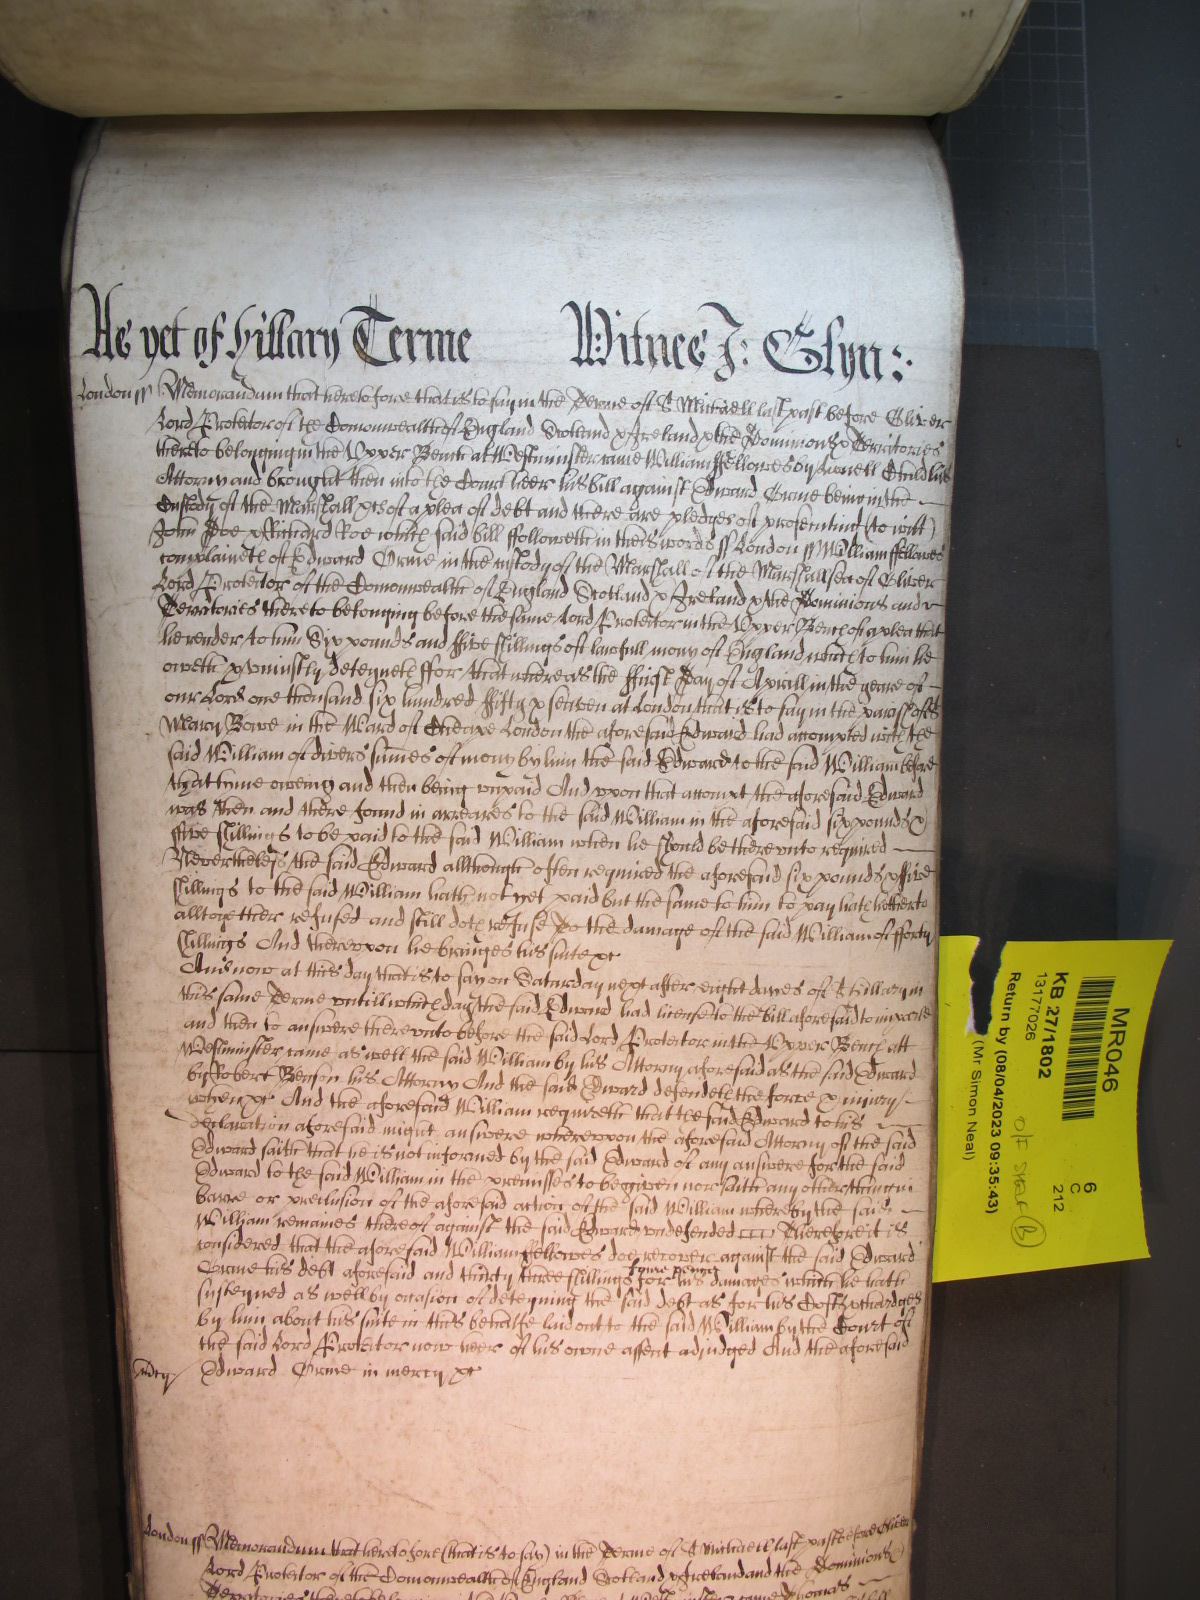 As yet of Hillary Terme Witnes J: Glyn:
London ss Memorandum that heretofore that is to say in the Terme of S Michaell last past before Oliver
Lord Protector of the Comonwealth of England Scotland & Ireland & the Dominions & Territories
thereto belonging in the Upper Bench at Westminster came William ffellowes by Child his
Attorny and brought then into the Court heer his bill against Edward Orme being in the
Custody of the Marshall &c of a plea of debt and there are pledges of prosecuting (to witt)
John Doe & Richard Roe which said bill ffolloweth in theis words ss London ss William ffellowes
complaineth of Edward Orme in the custody of the Marshall of the Marshallsea of Oliver
Lord Protector of the Comonwealth of England Scotland & Ireland & the Dominions and
Territories thereto belonging before the same Lord Protector in the Upper Bench of a plea that
he render to him Six pounds and ffive shillings of lawfull mony of England which to him he
oweth & uniustly deteyneth ffor that whereas the ffirst Day of Aprill in the yeare of
our Lord one thousand six hundred ffifty & seaven at London that is to say in the parish of S
Mary Bowe in the Ward of Cheape London the aforesaid Edward had accompted with the
said William of divers sumes of mony by him the said Edward to the said William before
that tyme oweing and then being unpaid And upon that accompt the aforesaid Edward
was then and there found in arreares to the said William in the aforesaid six pounds &
ffive shillings to be paid to the said William when he should be thereunto required
Nevertheless the said Edward allthough often required the aforesaid six pounds & ffive
shillings to the said William hath not yet paid but the same to him to pay hath hitherto
alltogether refused and still doth refuse To the damage of the said William of fforty
shillings And thereupon he bringes his suite &c
And now at this day that is to say on Saturday next after eight dayes of S Hillary in
this same Terme untill which day the said Edward had licence to the bill aforesaid to imparle
and then to answere thereunto before the said Lord Protector in the Upper Bench att
Westminster came as well the said William by his Attorny aforesaid as the said Edward
by Robert Benson his Attorny And the said Edward defendeth the force & iniury
when &c And the aforesaid William requireth that the said Edward to his
declaration aforesaid might answere whereupon the aforesaid Attorny of the said
Edward saith that he is not informed by the said Edward of any answere for the said
Edward to the said William in the premisses to be given nor saith any other thing in
barre or preclusion of the aforesaid action of the said William whereby the said
William remaines thereof against the said Edward undefended Therefore it is
considered that the aforesaid William ffellowes doe recover against the said Edward
Orme his debt aforesaid and thirty three shillings ffoure pence for his damages which he hath
susteyned as well by occasion of deteyning the said debt as for his Costs & chardges
by him about his suite in this behalfe laid out to the said William by the Court of
the said Lord Protector now heer of his owne assent adjudged And the aforesaid
mercy Edward Orme in mercy &c
London ss Memorandum that heretofore (that is to say) in the Terme of S Michaell last past before Oliver
Lord Protector of the Comonwealth of England Scotland & Ireland and the Dominions &
MR046
KB 27/1802
13177026
Return by (08/04/2023 09:35:43)
(Mr Simon Neal)
6
C
212